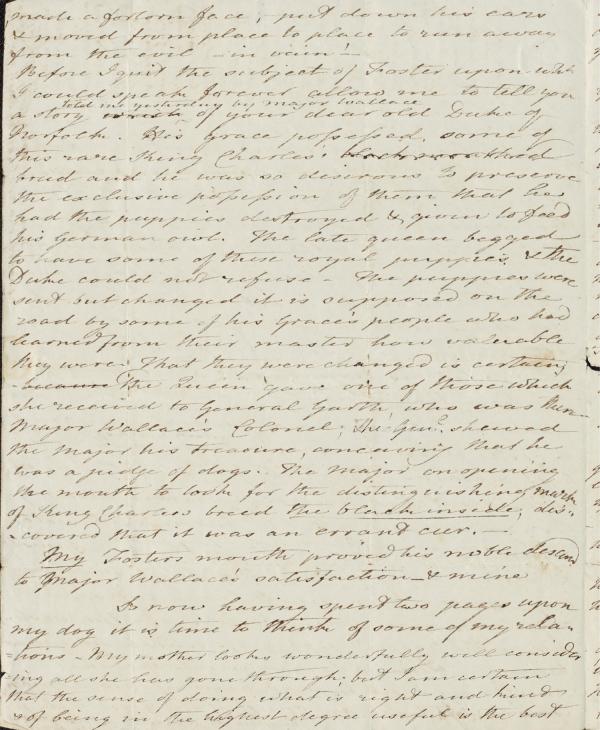 made a forlorn face, put down his ears
& moved from place to place to run away
from the evil – in vain! –
Before I quit the subject of Foster upon wh
I could speak forever allow me to tell you
told me yesterday by Major Wallace
a story which of your dear old Duke of
Norfolk. His grace possessed some of
this rare King Charles' black mouthed
breed and he was so desirous to preserve
the exclusive possession of them that he
had the puppies destroyed & given to feed
his German owl. The late queen begged
to have some of these royal puppies & the
Duke could not refuse – The puppies were
sent but changed it is supposed on the
road by some of his Grace's people who had
learned from their master how valuable
they were. That they were changed is certain,
because the Queen gave one of those which
she received to General Garth who was then
Major Wallace's Colonel; The Genl. shewed
the Major his treasure, conceiving that he
was a judge of dogs. The Major on opening
the mouth to look for the distinguishing mark
of King Charles breed the black inside, dis-
-covered that it was an errand cur. –
My Fosters mouth proved his noble descend
to Major Wallace's satisfaction – & mine
So now having spent two pages upon
my dog it is time to think of some of my rela-
-tions – My mother looks wonderfully well consider
ing all she has gone through; but I am certain
that the sense of doing what is right and kind
& of being in the highest degree useful is the best